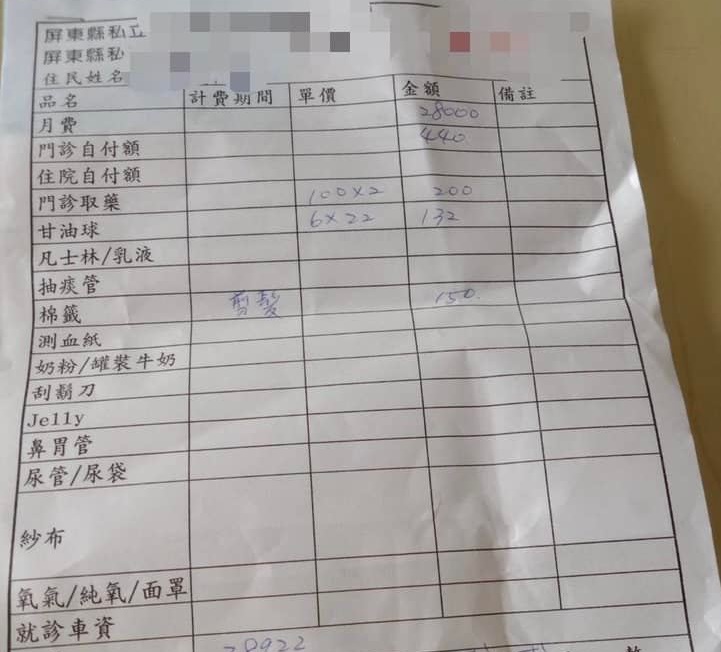 屏東縣私立
屏東縣私
住民姓名
品名 計費期間 單價 金額 備註
月費 28000
門診自付額 440
住院自付額
門診取藥 100×2 200
甘油球 6×22 132
凡士林/乳液
抽痰管
棉籤 剪髮 150
測血紙
奶粉/罐裝牛奶
刮鬍刀
Jelly
鼻胃管
尿管/尿袋
紗布
氧氣/純氧/面罩
就診車資
28922